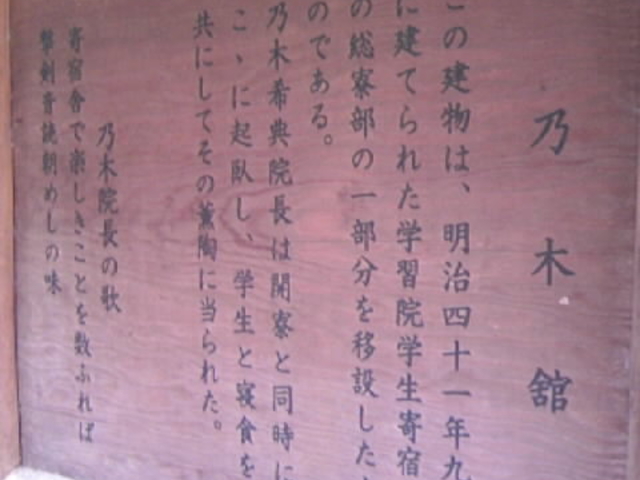 乃木舘
この建物は、明治四十一年九
に建てられた学習院学生寄宿
の総寮部の一部分を移設したも
のである。
乃木希典院長は開寮と同時に
こゝに起臥し、学生と寝食を
共にしてその薫陶に当られた。
乃木院長の歌
寄宿舎で楽しきことを数ふれば
撃剣音読朝めしの味